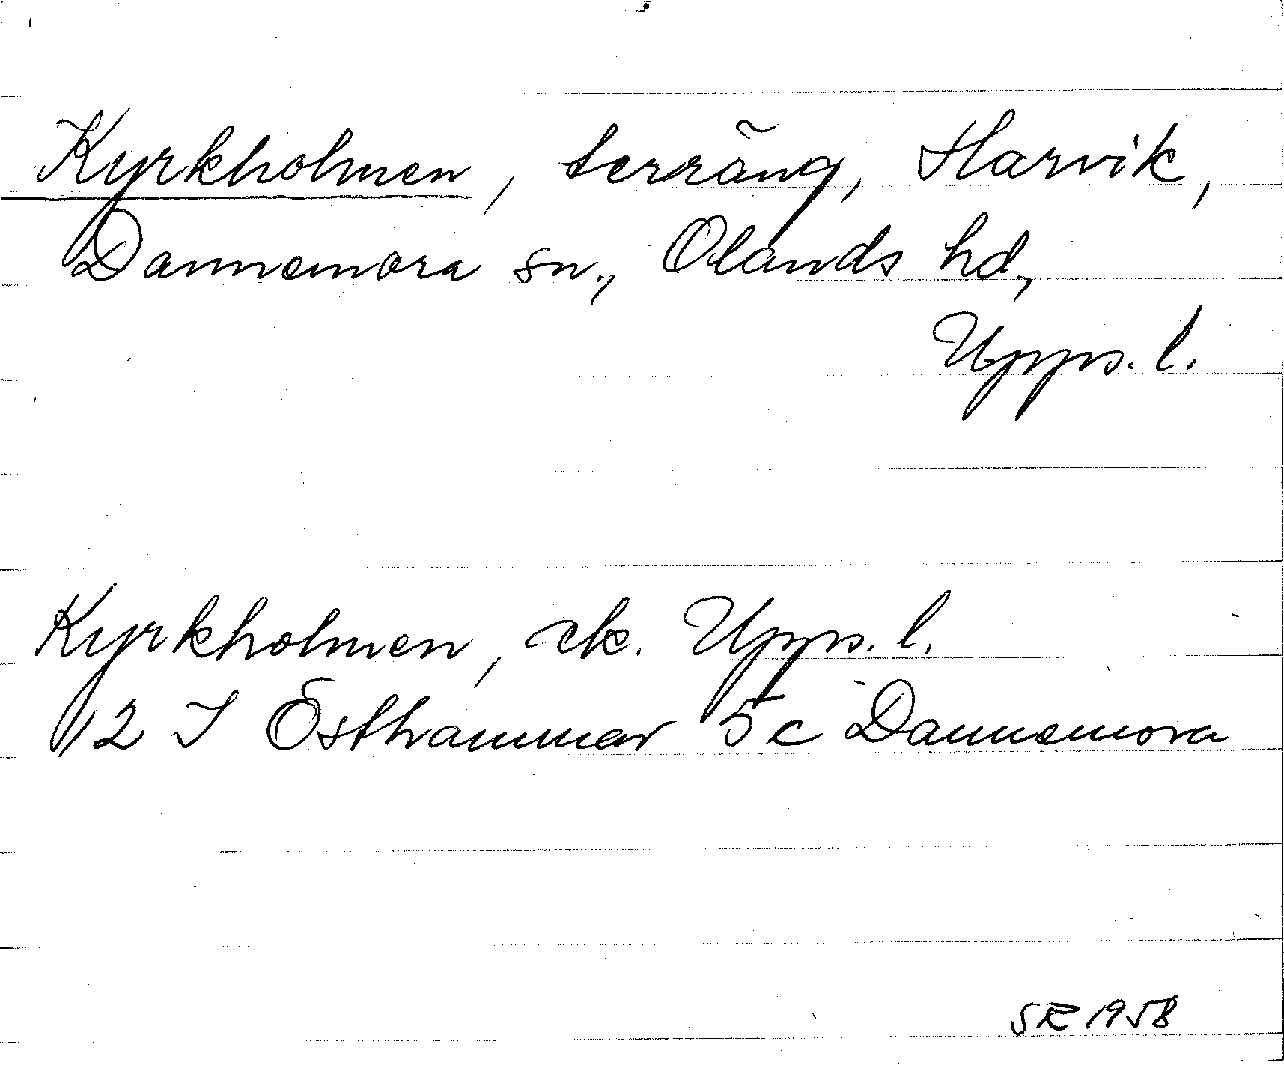 Kyrkholmen, terräng, Harvik,
Dannemora sn., Olands hd,
Upps. l.
Kyrkholmen, ek. Upps. l.
12 I Östhammar 5c Dannemora
SR 1958